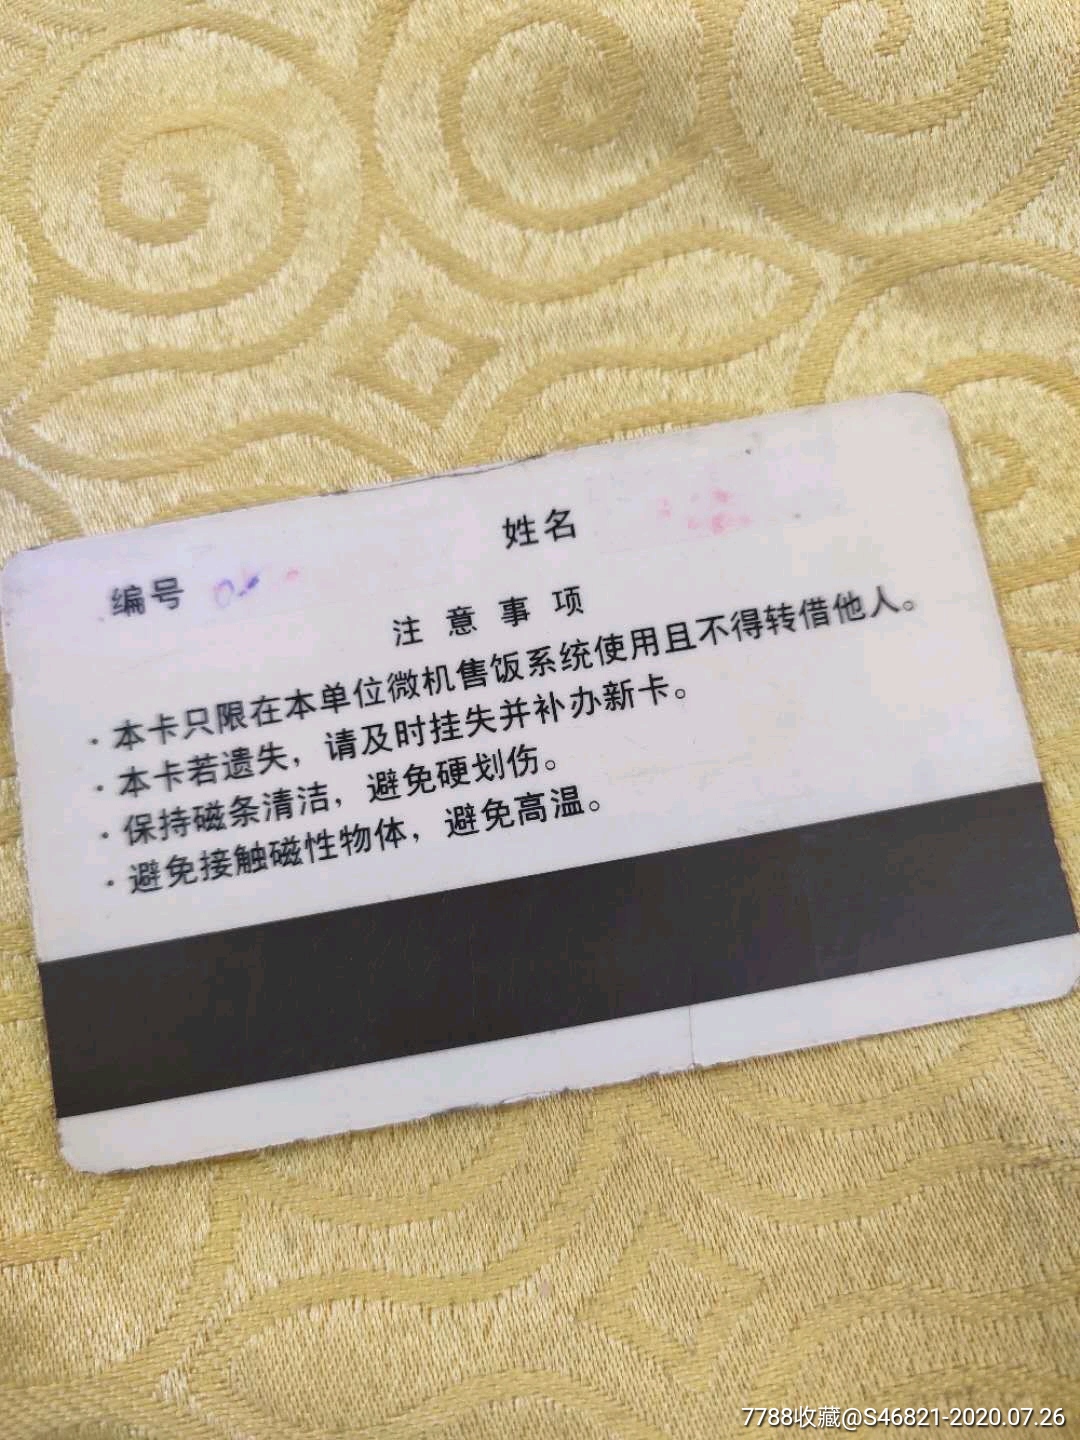 编号 姓名
注意事项
·本卡只限在本单位微机售饭系统使用且不得转借他人。
·本卡若遗失，请及时挂失并补办新卡。
·保持磁条清洁，避免硬划伤。
·避免接触磁性物体，避免高温。
7788收藏@S46821-2020.07.26